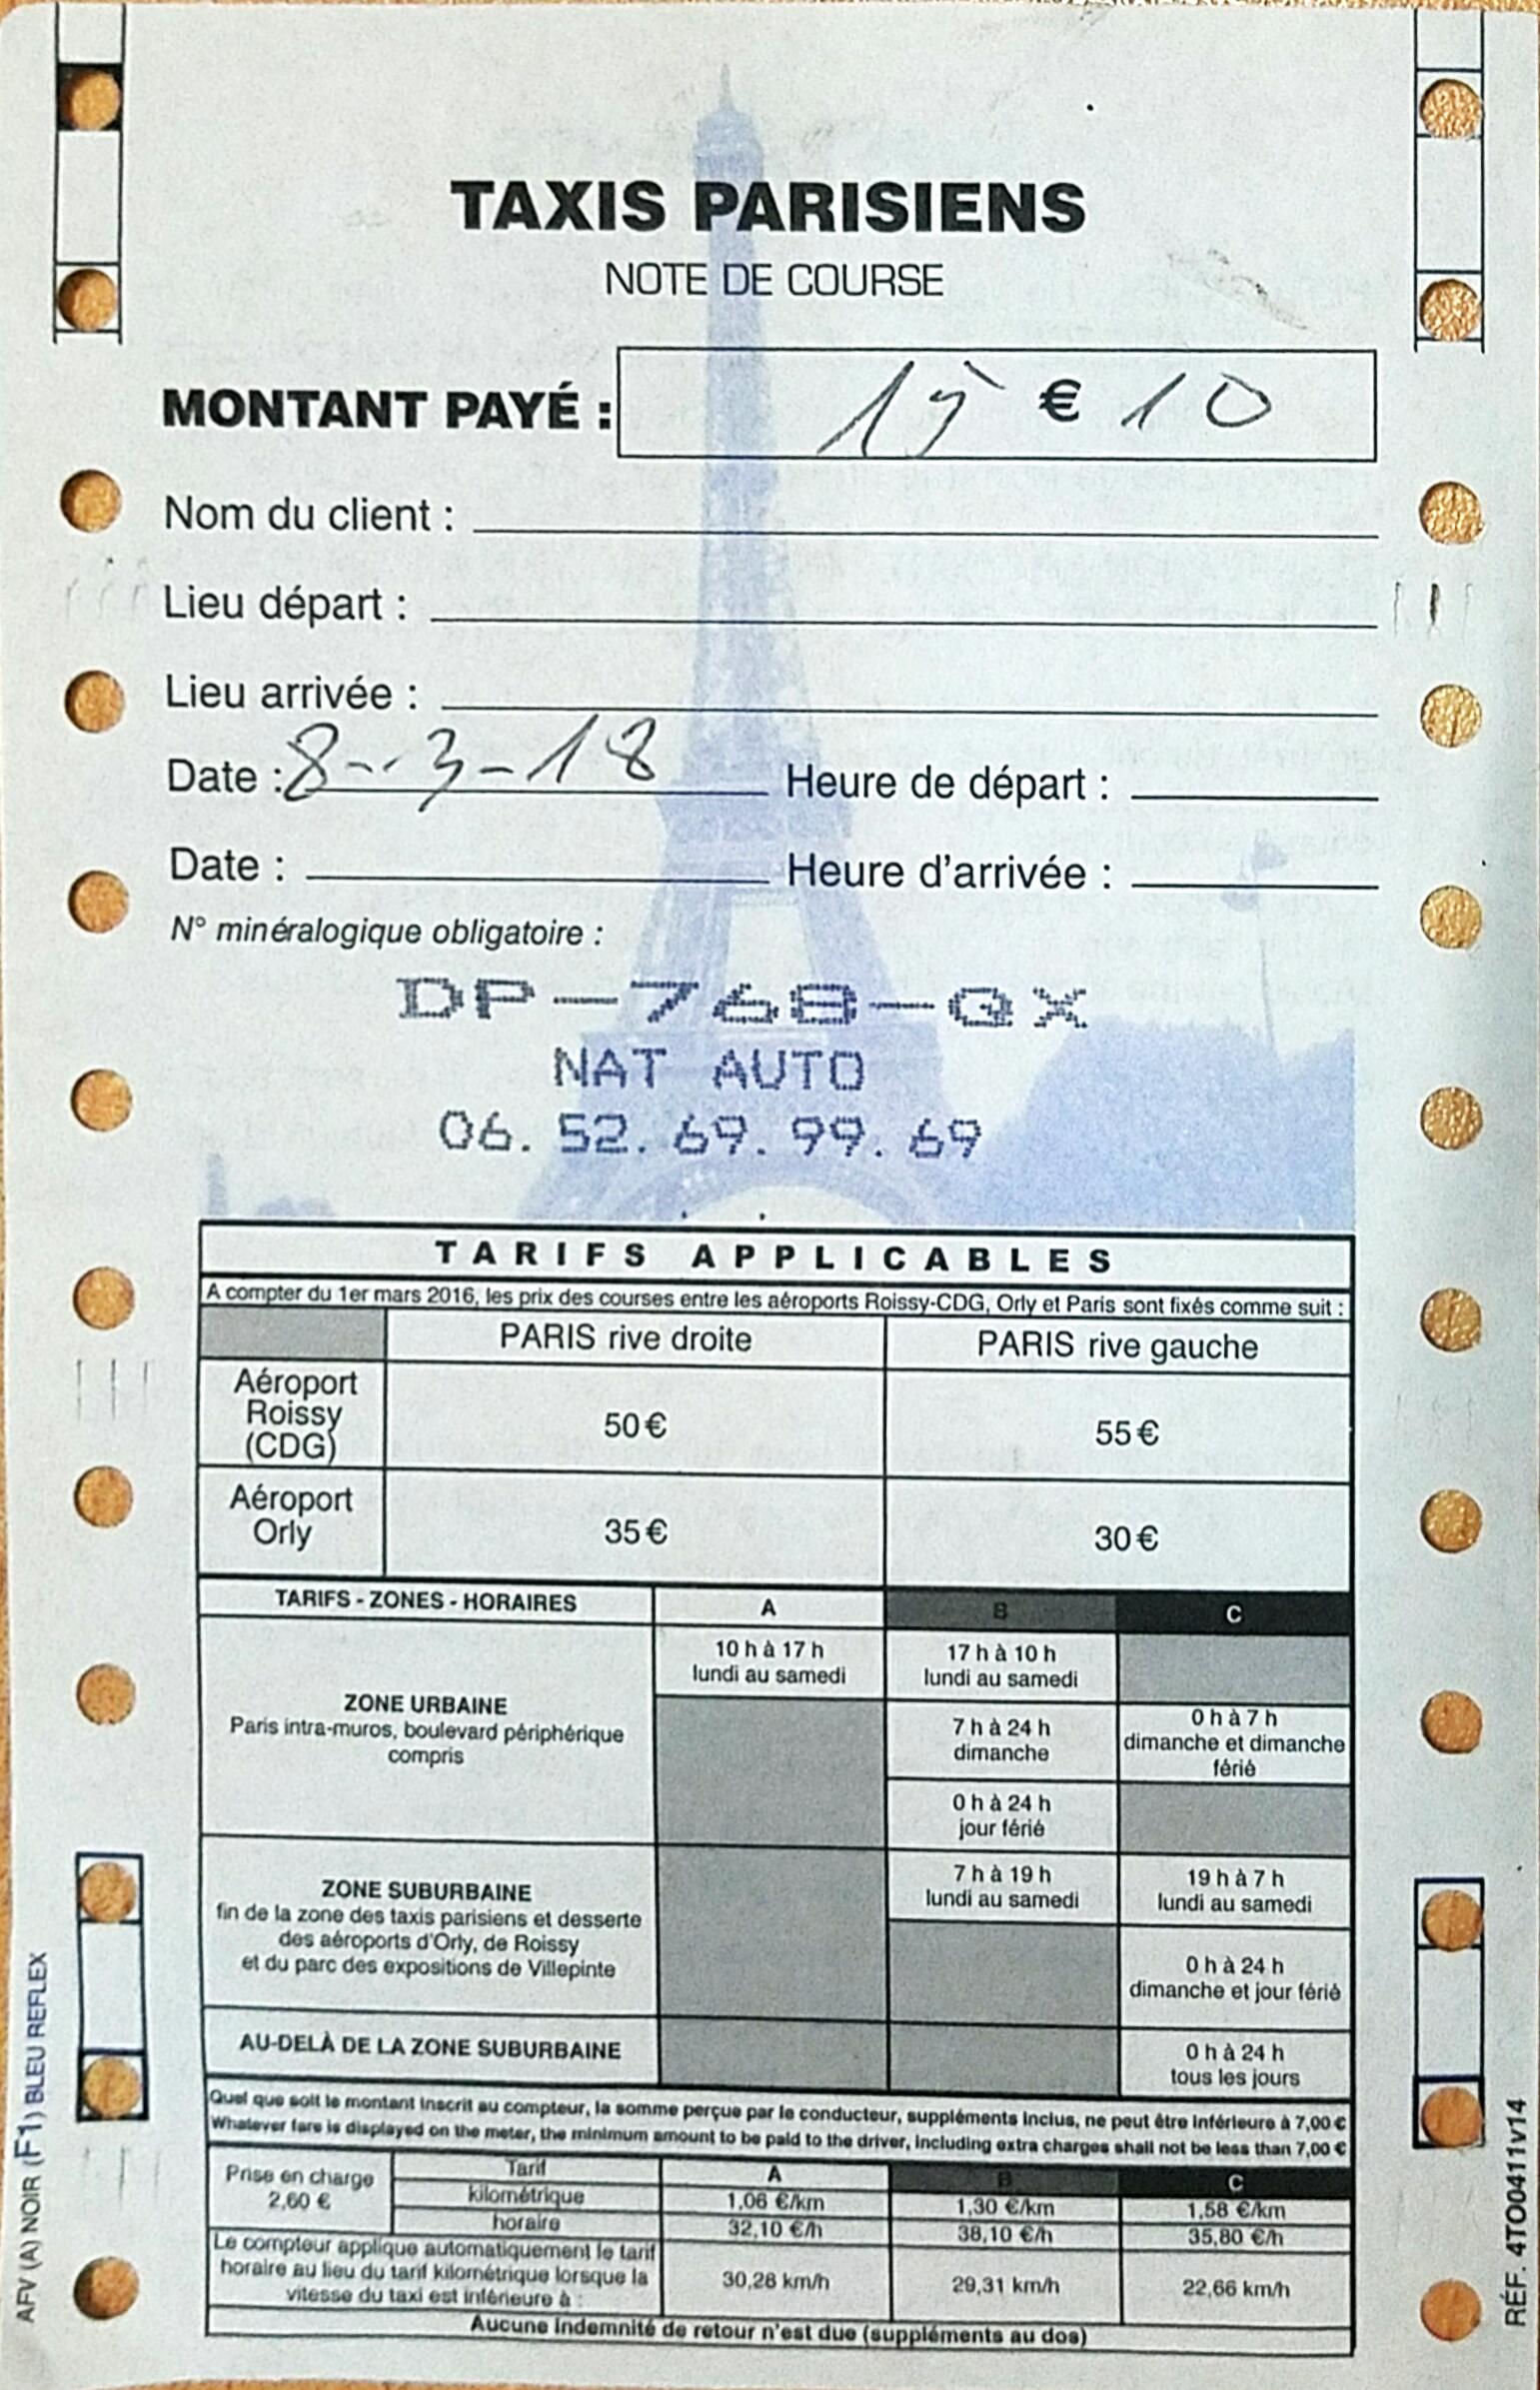 TAXIS PARISIENS
NOTE DE COURSE
MONTANT PAYÉ : € 10
Nom du client :
Lieu départ :
Lieu arrivée :
Date : 8-3-18 Heure de départ :
Date : Heure d'arrivée :
N° minéralogique obligatoire :
DP-768-QX
NAT AUTO
06. 52. 69. 99. 69
TARIFS APPLICABLES
A compter du 1er mars 2016, les prix des courses entre les aéroports Roissy-CDG, Orly et Paris sont fixés comme suit :
PARIS rive droite PARIS rive gauche
Aéroport
Roissy
(CDG)
50 € 55 €
Aéroport
Orly
35 € 30 €
TARIFS - ZONES - HORAIRES A B C
ZONE URBAINE
Paris intra-muros, boulevard périphérique
compris
10 h à 17 h
lundi au samedi
17 h à 10 h
lundi au samedi
7 h à 24 h
dimanche
0 h à 7 h
dimanche et dimanche
férié
0 h à 24 h
jour férié
ZONE SUBURBAINE
fin de la zone des taxis parisiens et desserte
des aéroports d'Orly, de Roissy
et du parc des expositions de Villepinte
7 h à 19 h
lundi au samedi
19 h à 7 h
lundi au samedi
0 h à 24 h
dimanche et jour férié
AU-DELÀ DE LA ZONE SUBURBAINE
0 h à 24 h
tous les jours
Quel que soit le montant inscrit au compteur, la somme perçue par le conducteur, suppléments inclus, ne peut être inférieure à 7,00 €
Whatever fare is displayed on the meter, the minimum amount to be paid to the driver, including extra charges shall not be less than 7,00 €
Prise en charge
2,60 €
Tarif A B C
kilométrique 1,06 €/km 1,30 €/km 1,58 €/km
horaire 32,10 €/h 38,10 €/h 35,80 €/h
Le compteur applique automatiquement le tarif
horaire au lieu du tarif kilométrique lorsque la
vitesse du taxi est inférieure à :
30,28 km/h 29,31 km/h 22,66 km/h
Aucune indemnité de retour n'est due (suppléments au dos)
AFV (A) NOIR (F1) BLEU REFLEX
RÉF. 4TO0411v14